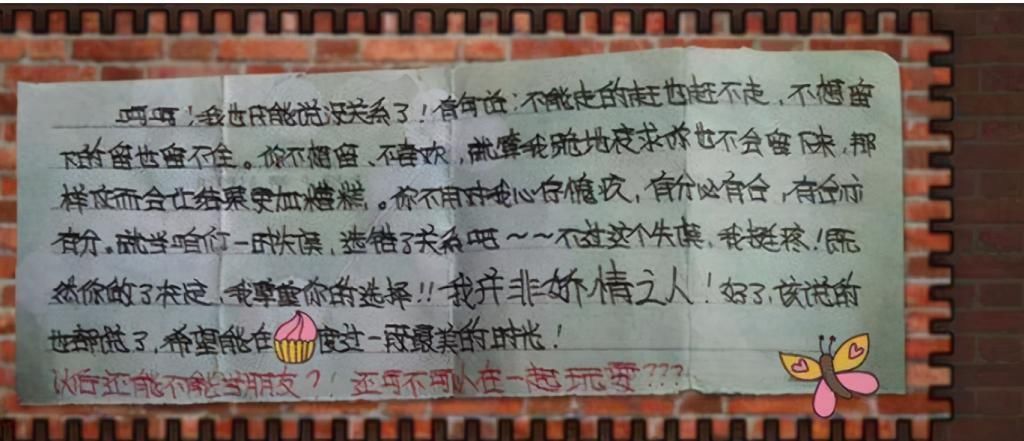 呵呵！我也只能说没关系了！有句话：不能走的赶也赶不走，不想留
下的留也留不住。你不想留、不喜欢，就算我跪地哀求你也不会留下来，那
样反而会让结果更加糟糕。你不用对我心存愧疚，有分必有合，有合亦
有分。就当咱们一时失误，选错了关系吧～～不过这个失误，我挺疼！既
然你做了决定，我尊重你的选择！！我并非娇情之人！好了，该说的
也都说了，希望能在 度过一段最美的时光！
以后还能不能当朋友？！还可不可以在一起玩耍？？？